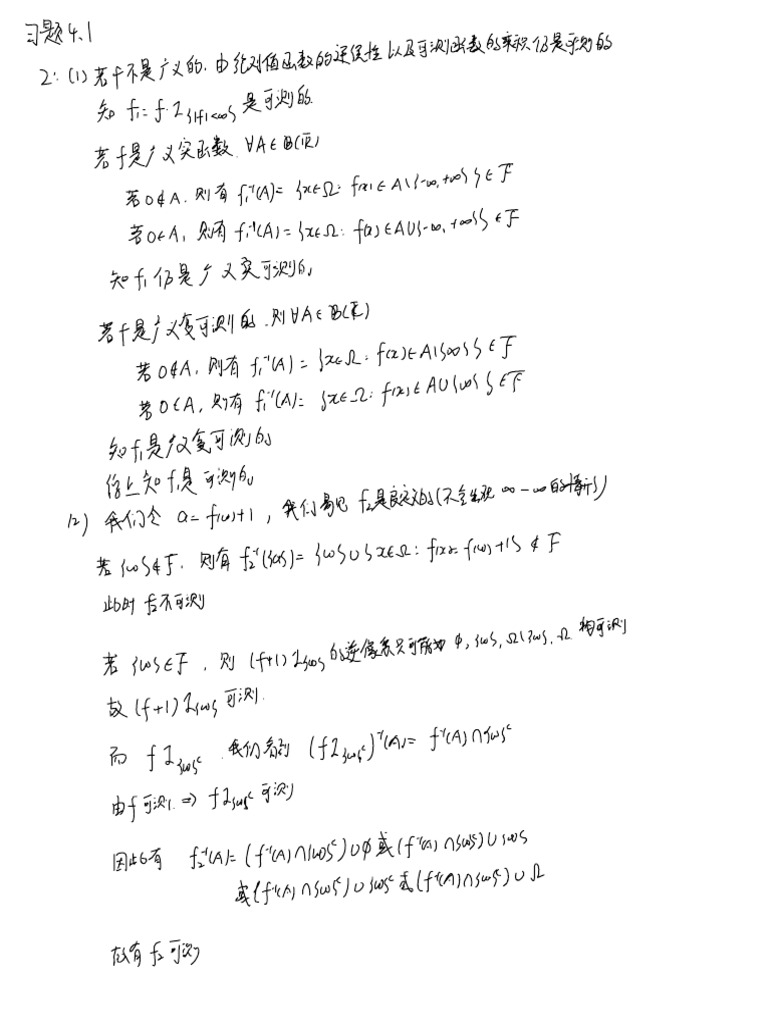 习题4.1
2: (1) 若f不是广义的.由绝对值函数的连续性以及可测函数的乘积仍是可测的
知 f₁=f·I_{|f|<∞} 是可测的.
若f是广义实函数. ∀A∈B(R̅)
若0∉A. 则有 f₁⁻¹(A)= {x∈Ω: f(x)∈A\{-∞,+∞}}∈F
若0∈A, 则有 f₁⁻¹(A)={x∈Ω: f(x)∈A∪{-∞,+∞}}∈F
知f₁仍是广义实可测的。
若f是广义复可测的.则∀A∈B(C̅)
若0∉A, 则有 f₁⁻¹(A)={x∈Ω: f(x)∈A\{∞}}∈F
若0∈A, 则有 f₁⁻¹(A)= {x∈Ω: f(x)∈A∪{∞}}∈F
知f₁是广义复可测的。
综上知f₁是可测的。
(2) 我们令 a=f(ω)+1, 我们易见 f₂是良定的(不会出现 ∞-∞的情形)
若{ω}∉F. 则有 f₂⁻¹({a})={ω}∪{x∈Ω: f(x)=f(ω)+1}∉F
此时 f₂不可测
若{ω}∈F, 则 (f+1)I_{ω}的逆像系只可能为 ∅,{ω},Ω\{ω},Ω 均可测
故(f+1)I_{ω}可测.
而 f I_{ω}ᶜ. 我们看到 (fI_{ω}ᶜ)⁻¹(A)= f⁻¹(A)∩{ω}ᶜ
由f可测.⇒ fI_{ω}ᶜ可测
因此有 f₂⁻¹(A)=(f⁻¹(A)∩{ω}ᶜ)∪∅或(f⁻¹(A)∩{ω}ᶜ)∪{ω}
或(f⁻¹(A)∩{ω}ᶜ)∪{ω}ᶜ或(f⁻¹(A)∩{ω}ᶜ)∪Ω
故有 f₂可测